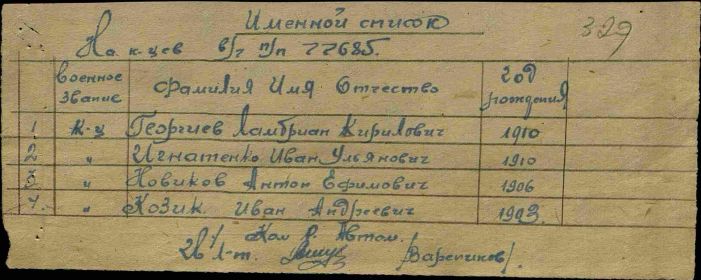 Именной список
329
На к-цев в/ч п/п 77685.
Военное звание Фамилия Имя Отчество год рождения
1 К-ц Георгиев Ламбриан Кирилович 1910
2 " Игнатенко Иван Ульянович 1910
3 " Новиков Антон Ефимович 1906
4. " Козик Иван Андреевич 1903.
Ком р. Автом.
л-т. /Варепиков/.